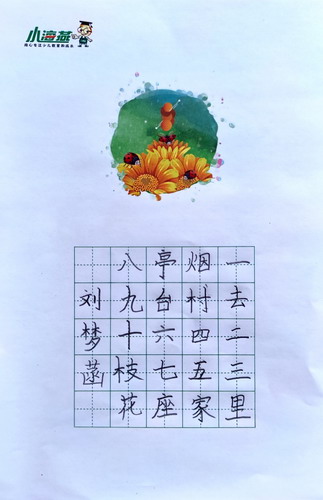 小渲燕
用心专注少儿教育和成长
一去二三里
烟村四五家
亭台六七座
八九十枝花
刘梦菡